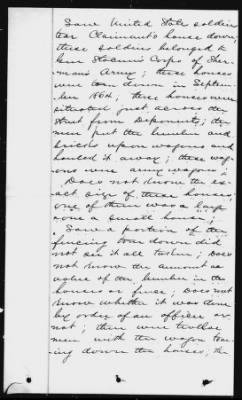 Saw United State soldiers
tear Claimant's house down,
these soldiers belonged to
Gen Slocum's Corps of Sher-
man's Army; these houses
were torn down in Septem-
ber 1864; these houses were
situated just across the
street from Deponents; the
men put the lumber and
bricks upon wagons and
hauled it away; these wag-
ons were army wagons;
Does not know the ex-
act size of these houses,
one of them was a large
one & a small house;
Saw a portion of the
fencing torn down did
not see it all taken; Does
not know the amount or
value of the lumber in the
houses or fence; Does not
know whether it was done
by order of an officer or
not; there were twelve
men with the wagon tear-
ing down the houses; the